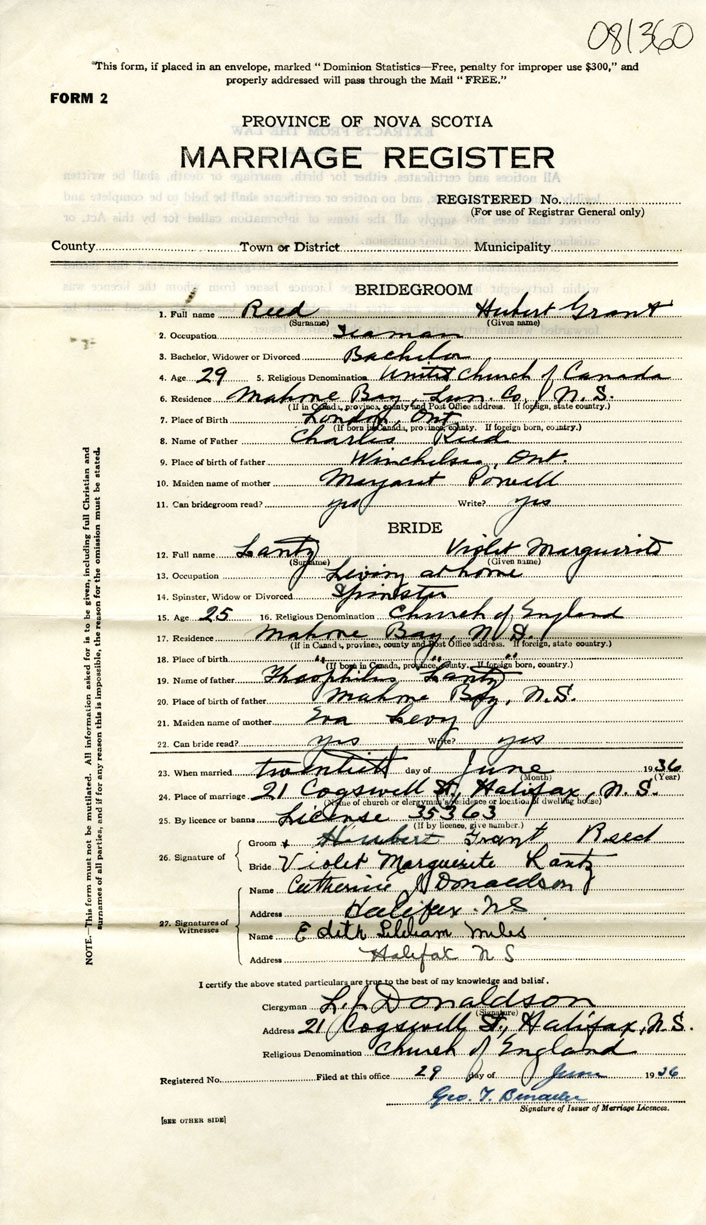 081360
"This form, if placed in an envelope, marked "Dominion Statistics—Free, penalty for improper use $300," and
properly addressed will pass through the Mail "FREE."
FORM 2
PROVINCE OF NOVA SCOTIA
MARRIAGE REGISTER
REGISTERED No.
(For use of Registrar General only)
County Town or District Municipality
BRIDEGROOM
1. Full name Reed Hubert Grant
(Surname) (Given name)
2. Occupation Seaman
3. Bachelor, Widower or Divorced Bachelor
4. Age 29 5. Religious Denomination United Church of Canada
6. Residence Mahone Bay, Lun. Co., N.S.
(If in Canada, province, county and Post Office address. If foreign, state country.)
7. Place of Birth London, Ont.
(If born in Canada, province, county. If foreign born, country.)
8. Name of Father Charles Reed
9. Place of birth of father Winchelsea, Ont.
10. Maiden name of mother Margaret Powell
11. Can bridegroom read? yes Write? yes
BRIDE
12. Full name Lantz Violet Marguerite
(Surname) (Given name)
13. Occupation Living at home
14. Spinster, Widow or Divorced Spinster
15. Age 25 16. Religious Denomination Church of England
17. Residence Mahone Bay, N.S.
(If in Canada, province, county and Post Office address. If foreign, state country.)
18. Place of birth " " "
(If born in Canada, province, county. If foreign born, country.)
19. Name of father Theophilus Lantz
20. Place of birth of father Mahone Bay, N.S.
21. Maiden name of mother Eva Levy
22. Can bride read? yes Write? yes
23. When married twentieth day of June 1936
(Month) (Year)
24. Place of marriage 21 Cogswell St, Halifax, N.S.
(Name of church or clergyman's residence or location of dwelling house)
25. By licence or banns License 35363
(If by licence, give number.)
26. Signature of
Groom x Hubert Grant Reed
Bride Violet Marguerite Lantz
27. Signatures of Witnesses
Name Catherine J Donaldson
Address Halifax. NS
Name Edith Lilliam Miles
Address Halifax N S
I certify the above stated particulars are true to the best of my knowledge and belief.
Clergyman L. J. Donaldson
(Signature)
Address 21 Cogswell St, Halifax, N.S.
Religious Denomination Church of England
Registered No. Filed at this office 29 day of June 1936
Geo. T.
Signature of Issuer of Marriage Licences.
[SEE OTHER SIDE]
NOTE.—This form must not be mutilated. All information asked for is to be given, including full Christian and
surnames of all parties, and if for any reason this is impossible, the reason for the omission must be stated.